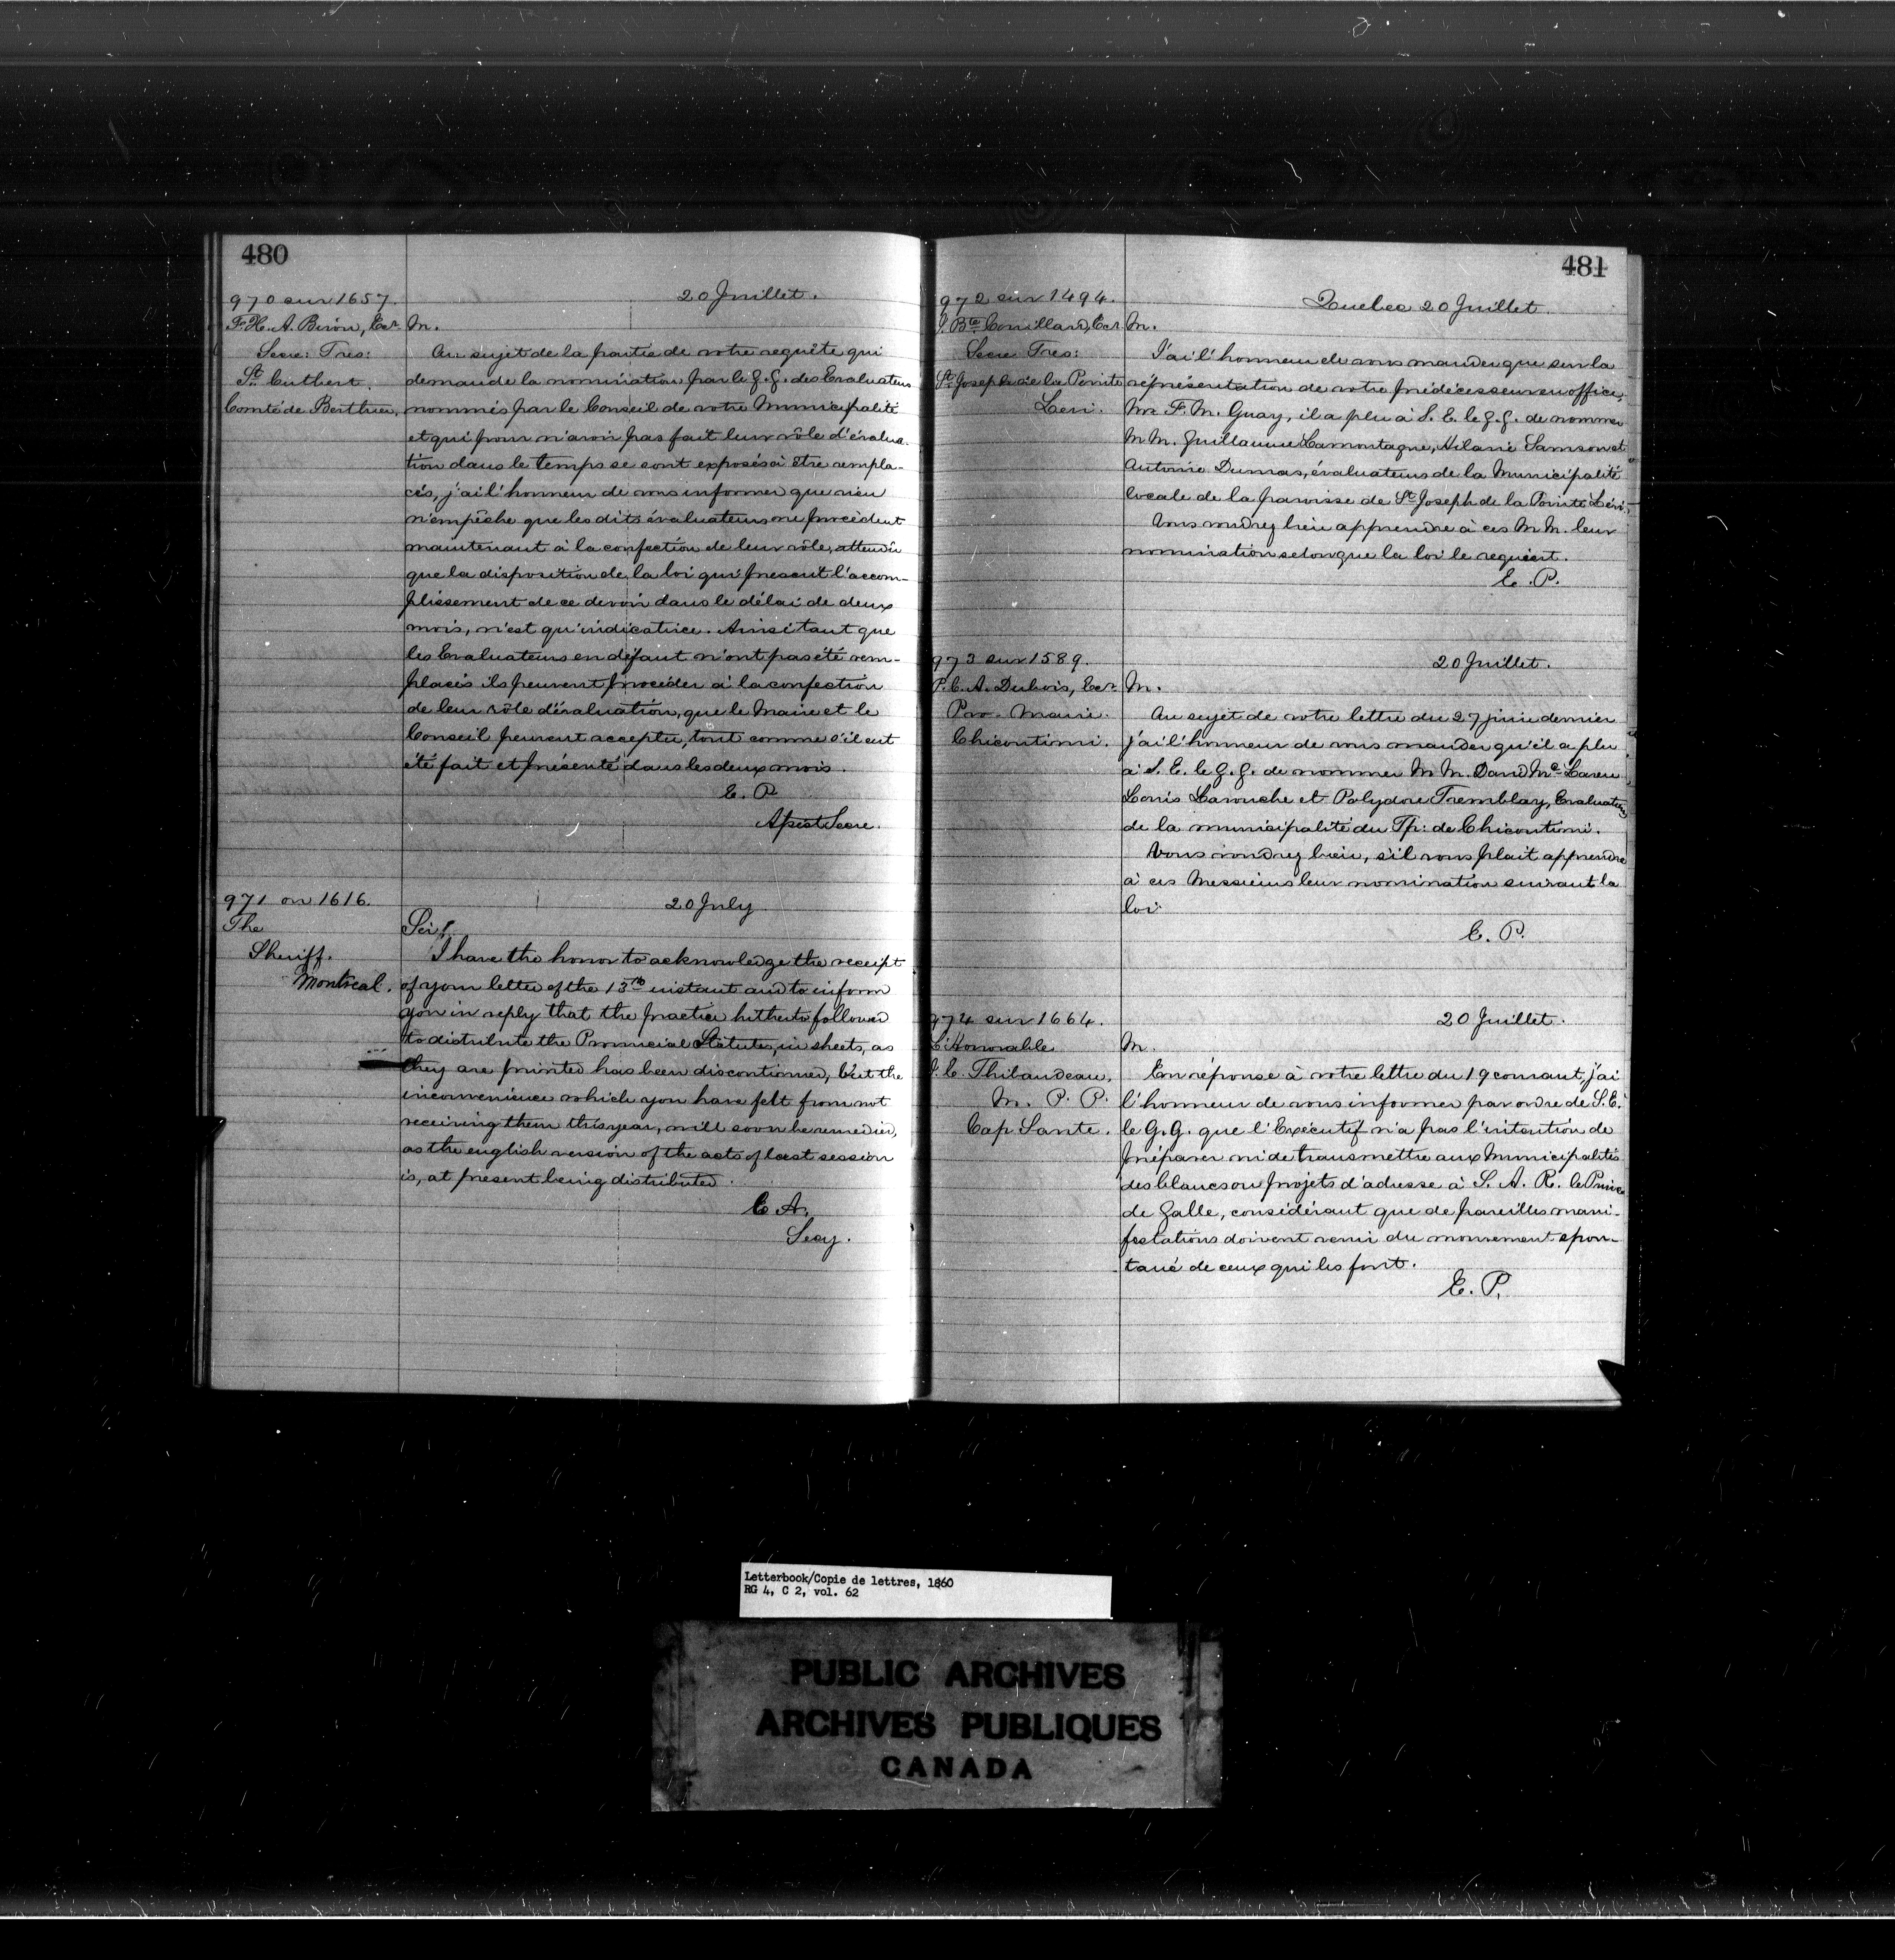 480
970 sur 1657.
F. H. A. Biron, Ecr
Secre: Tres:
St. Cutbert.
Comté de Berthier.
20 Juillet.
M.
Au sujet de la partie de votre requête qui
demande la nomination par le G. G. des Evaluateurs
nommés par le Conseil de votre Municipalité
et qui pour n'avoir pas fait leur rôle d'évalua-
tion dans le temps se sont exposés à être rempla-
cés, j'ai l'honneur de vous informer que rien
n'empêche que les dits évaluateurs ne procèdent
maintenant à la confection de leur rôle, attendu
que la disposition de la loi qui prescrit l'accom-
plissement de ce devoir dans le délai de deux
mois, n'est qu'indicatrice. Ainsi tant que
les Evaluateurs en défaut n'ont pas été rem-
placés ils peuvent procéder à la confection
de leur rôle d'évaluation, que le Maire et le
Conseil peuvent accepter, tout comme s'il eut
été fait et présenté dans les deux mois.
E. P.
Assist Secre.
971 on 1616.
The
Sheriff.
Montreal.
20 July
Sir,
I have the honor to acknowledge the receipt
of your letter of the 13th instant and to inform
you in reply that the practice hitherto followed
to distribute the Provincial Statutes, in sheets, as
they are printed has been discontinued, but the
inconvenience which you have felt from not
receiving them this year, will soon be remedied,
as the english version of the acts of last session
is, at present being distributed.
C. A.
Secy.
481
972 sur 1494.
J. Bte Couillard, Ecr
Secre Tres:
St. Joseph de la Pointe
Levi.
Quebec 20 Juillet.
M.
J'ai l'honneur de vous mander que sur la
réprésentation de votre prédécesseur en office,
Mr. F. M. Guay, il a plu à S. E. le G. G. de nommer
M M. Guillaume Lamontagne, Hilaire Samson et
Antoine Dumas, évaluateurs de la Municipalité
locale de la paroisse de St Joseph de la Pointe Lévi.
Vous voudrez bien apprendre à ces M M. leur
nomination selon que la loi le requiert.
E. P.
973 sur 1589.
P. C. A. Dubois, Ecr
Pro-Maire.
Chicoutimi.
20 Juillet.
M.
Au sujet de votre lettre du 27 juin dernier
j'ai l'honneur de vous mander qu'il a plu
à S. E. le G. G. de nommer M M. David Mc Laren
Louis Larouche et Polydore Tremblay, Evaluateurs
de la municipalité du Tp: de Chicoutimi.
Vous voudrez bien, s'il vous plait apprendre
à ces Messieurs leur nomination suivant la
loi.
E. P.
974 sur 1664.
L'Honorable
J. E. Thibaudeau,
M. P. P.
Cap Santé.
20 Juillet.
M.
En réponse à votre lettre du 19 courant, j'ai
l'honneur de vous informer par ordre de S. E.
le G. G. que l'Exécutif n'a pas l'intention de
préparer ni de transmettre aux Municipalités
des blancs ou projets d'adresse à S. A. R. le Prince
de Galle, considérant que de pareilles mani-
festations doivent venir du mouvement spon-
tané de ceux qui les font.
E. P.
Letterbook/Copie de lettres, 1860
RG 4, C 2, vol. 62
PUBLIC ARCHIVES
ARCHIVES PUBLIQUES
CANADA